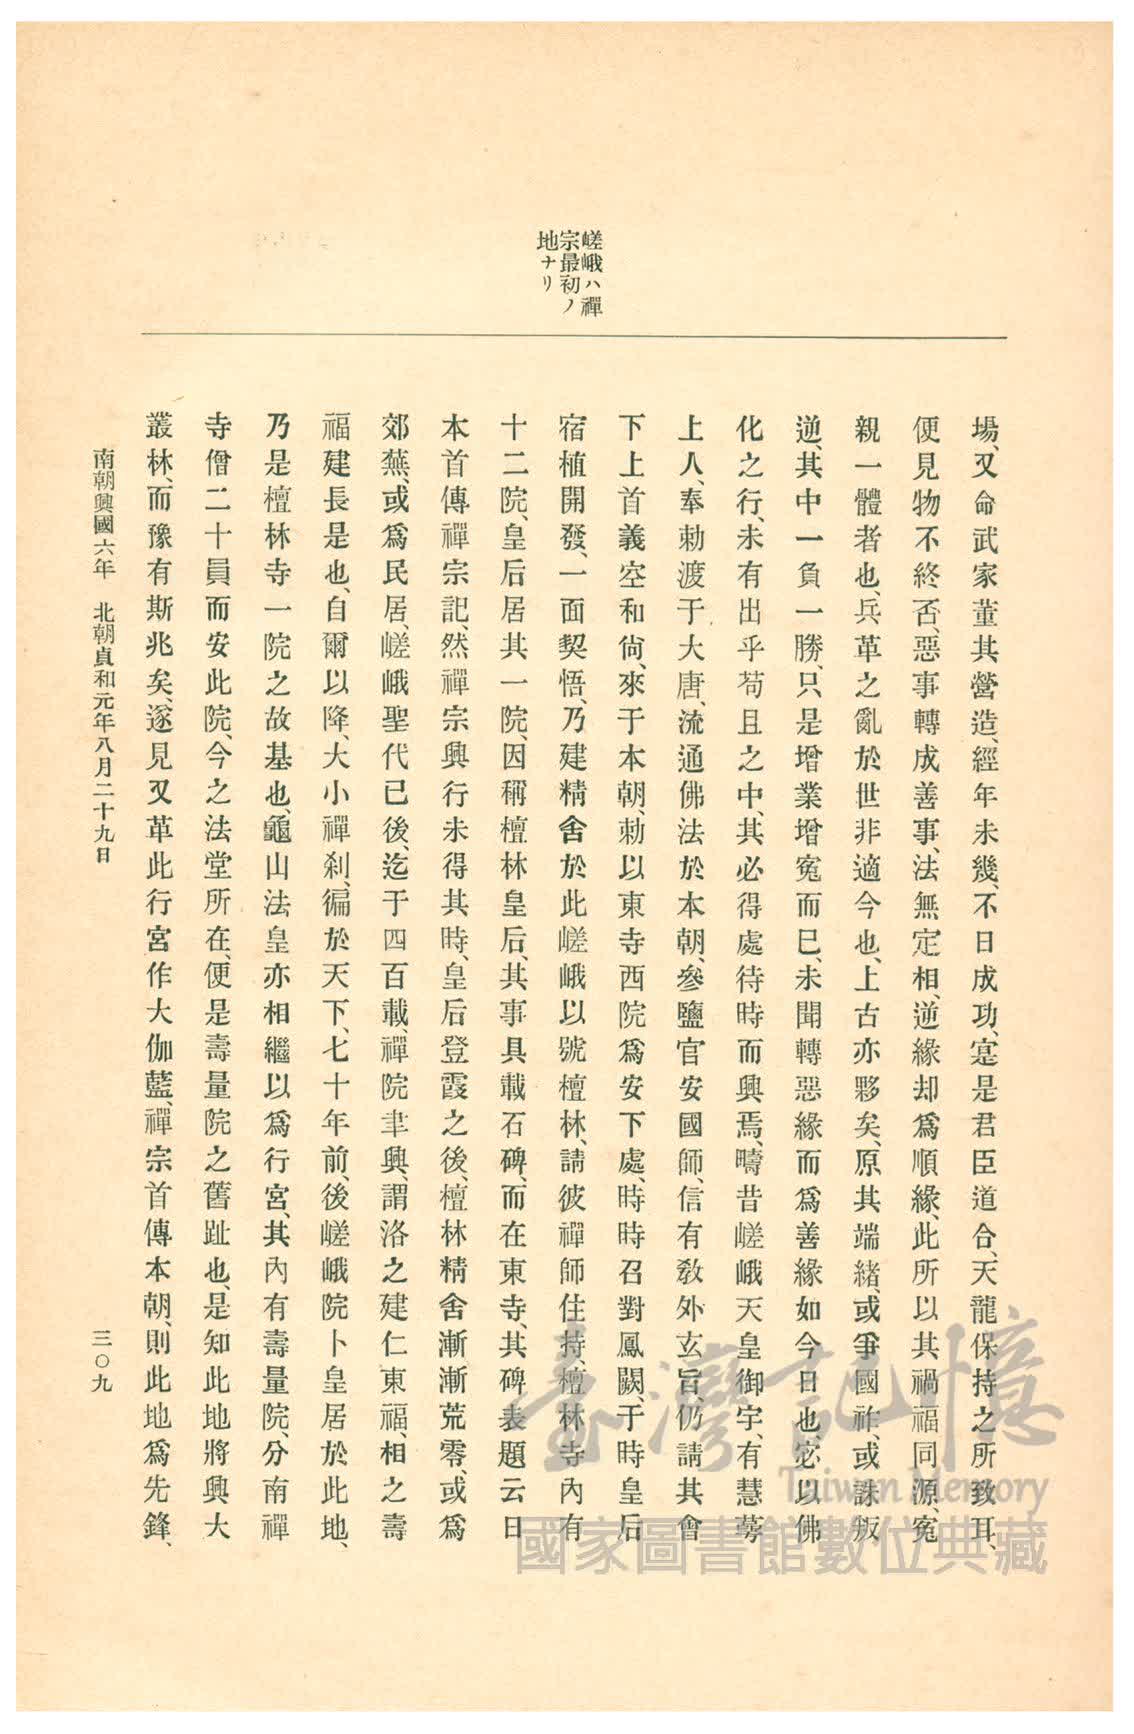 嵯峨ハ禪
宗最初ノ
地ナリ
場、又命武家董其營造、經年未幾、不日成功、寔是君臣道合、天龍保持之所致耳、
便見物不終否、惡事轉成善事、法無定相、逆緣却爲順緣、此所以其禍福同源、寃
親一體者也、兵革之亂於世非適今也、上古亦夥矣、原其端緒、或爭國祚、或誅叛
逆、其中一負一勝、只是增業增寃而已、未聞轉惡緣而爲善緣如今日也、宓以佛
化之行、未有出乎苟且之中、其必得處待時而興焉、疇昔嵯峨天皇御宇、有慧萼
上人、奉勅渡于大唐、流通佛法於本朝、參鹽官安國師、信有敎外玄旨、仍請其會
下上首義空和尙、來于本朝、勅以東寺西院爲安下處、時時召對鳳闕、于時皇后
宿植開發、一面契悟、乃建精舍於此嵯峨以號檀林、請彼禪師住持、檀林寺內有
十二院、皇后居其一院、因稱檀林皇后、其事具載石碑、而在東寺、其碑表題云日
本首傳禪宗記、然禪宗興行未得其時、皇后登霞之後、檀林精舍漸漸荒零、或爲
郊蕪、或爲民居、嵯峨聖代已後、迄于四百載、禪院聿興、謂洛之建仁東福、相之壽
福建長是也、自爾以降、大小禪刹、徧於天下、七十年前、後嵯峨院卜皇居於此地、
乃是檀林寺一院之故基也、龜山法皇亦相繼以爲行宮、其內有壽量院、分南禪
寺僧二十員而安此院、今之法堂所在、便是壽量院之舊趾也、是知此地將興大
叢林、而豫有斯兆矣、遂見又革此行宮作大伽藍、禪宗首傳本朝、則此地爲先鋒、
南朝興國六年　北朝貞和元年八月二十九日
三〇九
臺灣記憶
Taiwan Memory
國家圖書館數位典藏